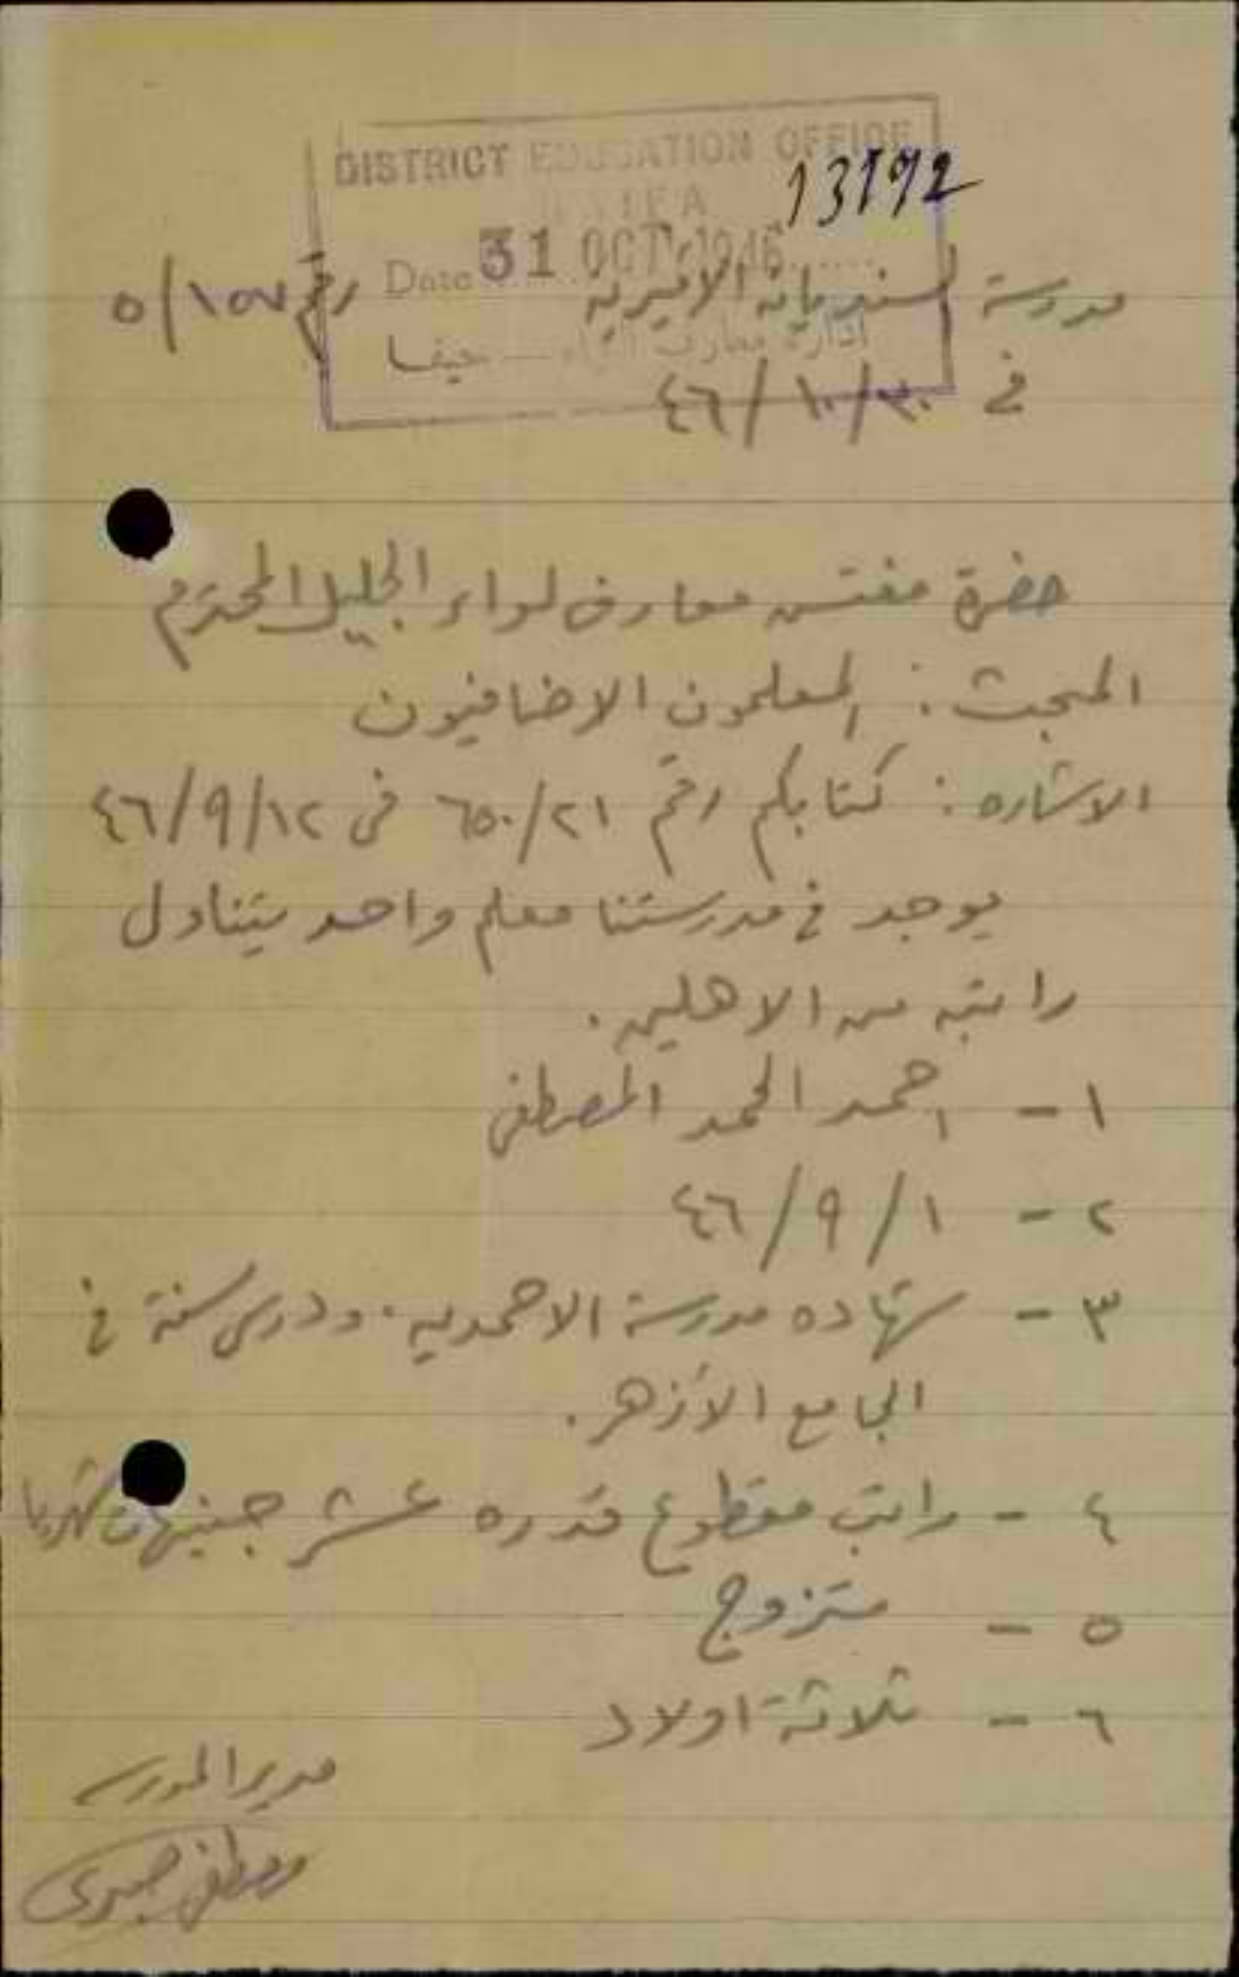 DISTRICT EDUCATION OFFICE
HAIFA
13192
Date 31 OCT 1946
مدرسة السنديانه الاميرية رقم ١٥٧/٥
ادارة معارف اللواء - حيفا
في ٣٠/١٠/٤٦
حضرة مفتش معارف لواء الجليل المحترم
المبحث : المعلمون الاضافيون
الاشاره : كتابكم رقم ٦٥٠/٢١ في ٤٦/٩/١٢
يوجد في مدرستنا معلم واحد يتناول
راتبه من الاهلين .
١ - احمد الحمد المصطفى
٢ - ١/٩/٤٦
٣ - شهاده مدرسة الاحمديه . ودرس سنة في
الجامع الأزهر .
٤ - راتب مقطوع قدره عشر جنيهات شهريا
٥ - متزوج
٦ - ثلاثة اولاد
مدير المدرسه
مصطفى